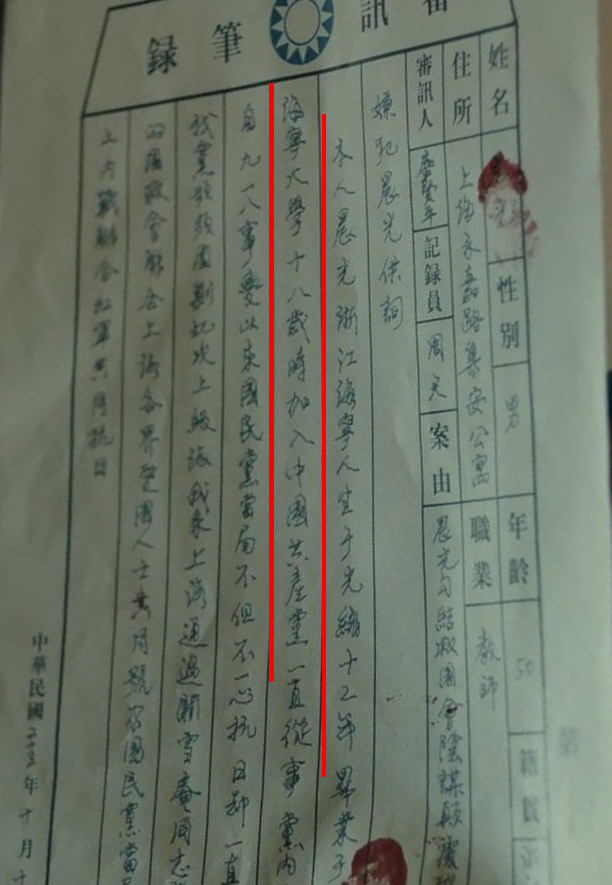 審訊筆録
姓名 晨光 性別 男 年齡 50 籍貫
住所 上海永嘉路集安公寓 職業 教師
審訊人 記録員 周天 案由 晨光勾結救国會陰謀顛覆
嫌犯晨光供詞
本人晨光浙江海寧人生于光緒十二年畢業于
海寧大學十八歲時加入中國共產黨一直從事黨内
自九一八事變以來國民黨當局不但不一心抗日却一直
我黨 上級派我來上海通過 雪庵同志
國救會联合上海各界愛國人士共同號 國民黨當
上内戰聯合紅軍共同抗日
中華民國二十五年十月十
第